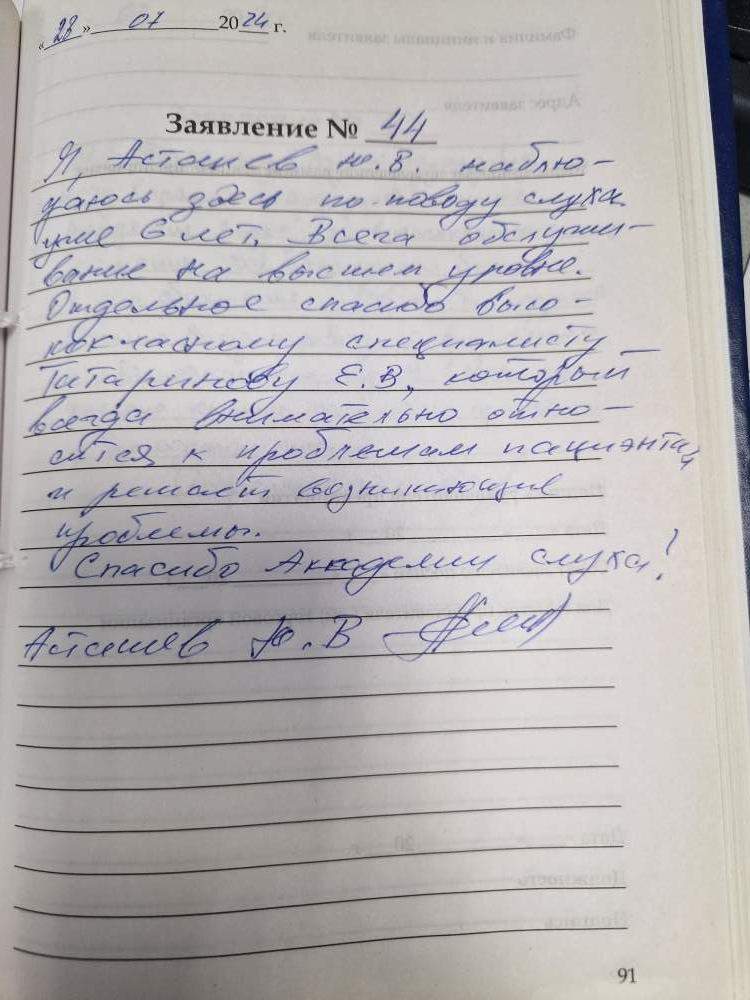 «28» 07 2024 г.
Заявление № 44
Я, Асташев Ю.В. наблю-
даюсь здесь по поводу слуха
уже 6 лет. Всега обслужи-
вание на высшем уровне.
Отдельное спасибо высо-
кокласному специалисту
Татаринову Е.В, который
всегда внимательно отно-
сится к проблемам пациента
и решает возникающие
проблемы.
Спасибо Аккадемии слуха!
Асташев Ю.В
91